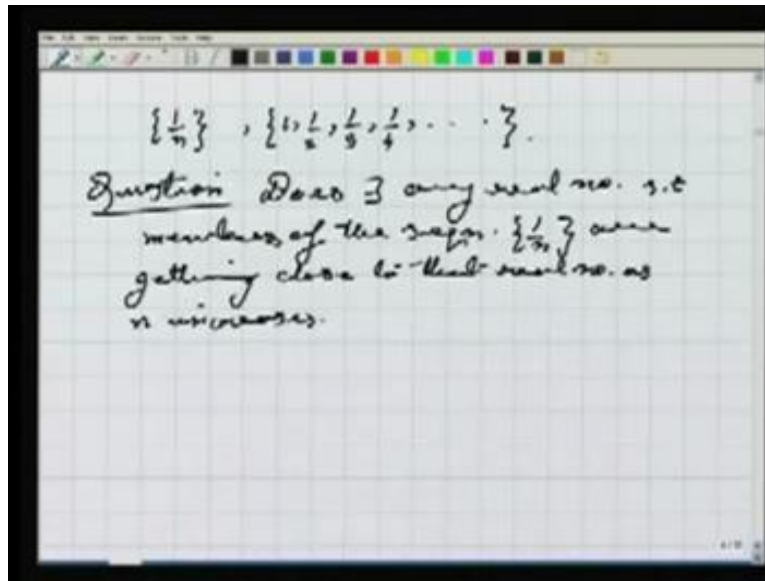 {1/n} , {1, 1/2, 1/3, 1/4, . . . }.
Question Does ∃ any real no. s.t
members of the seqn. {1/n} are
getting close to that real no. as
n increases.